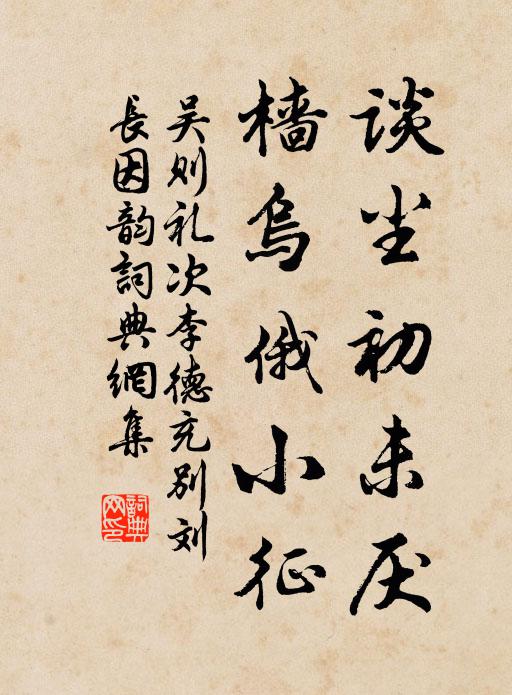 谈尘初未厌
樯乌俄小征
吴则礼次李德充别刘
長因韵詞典網集
詞典網印